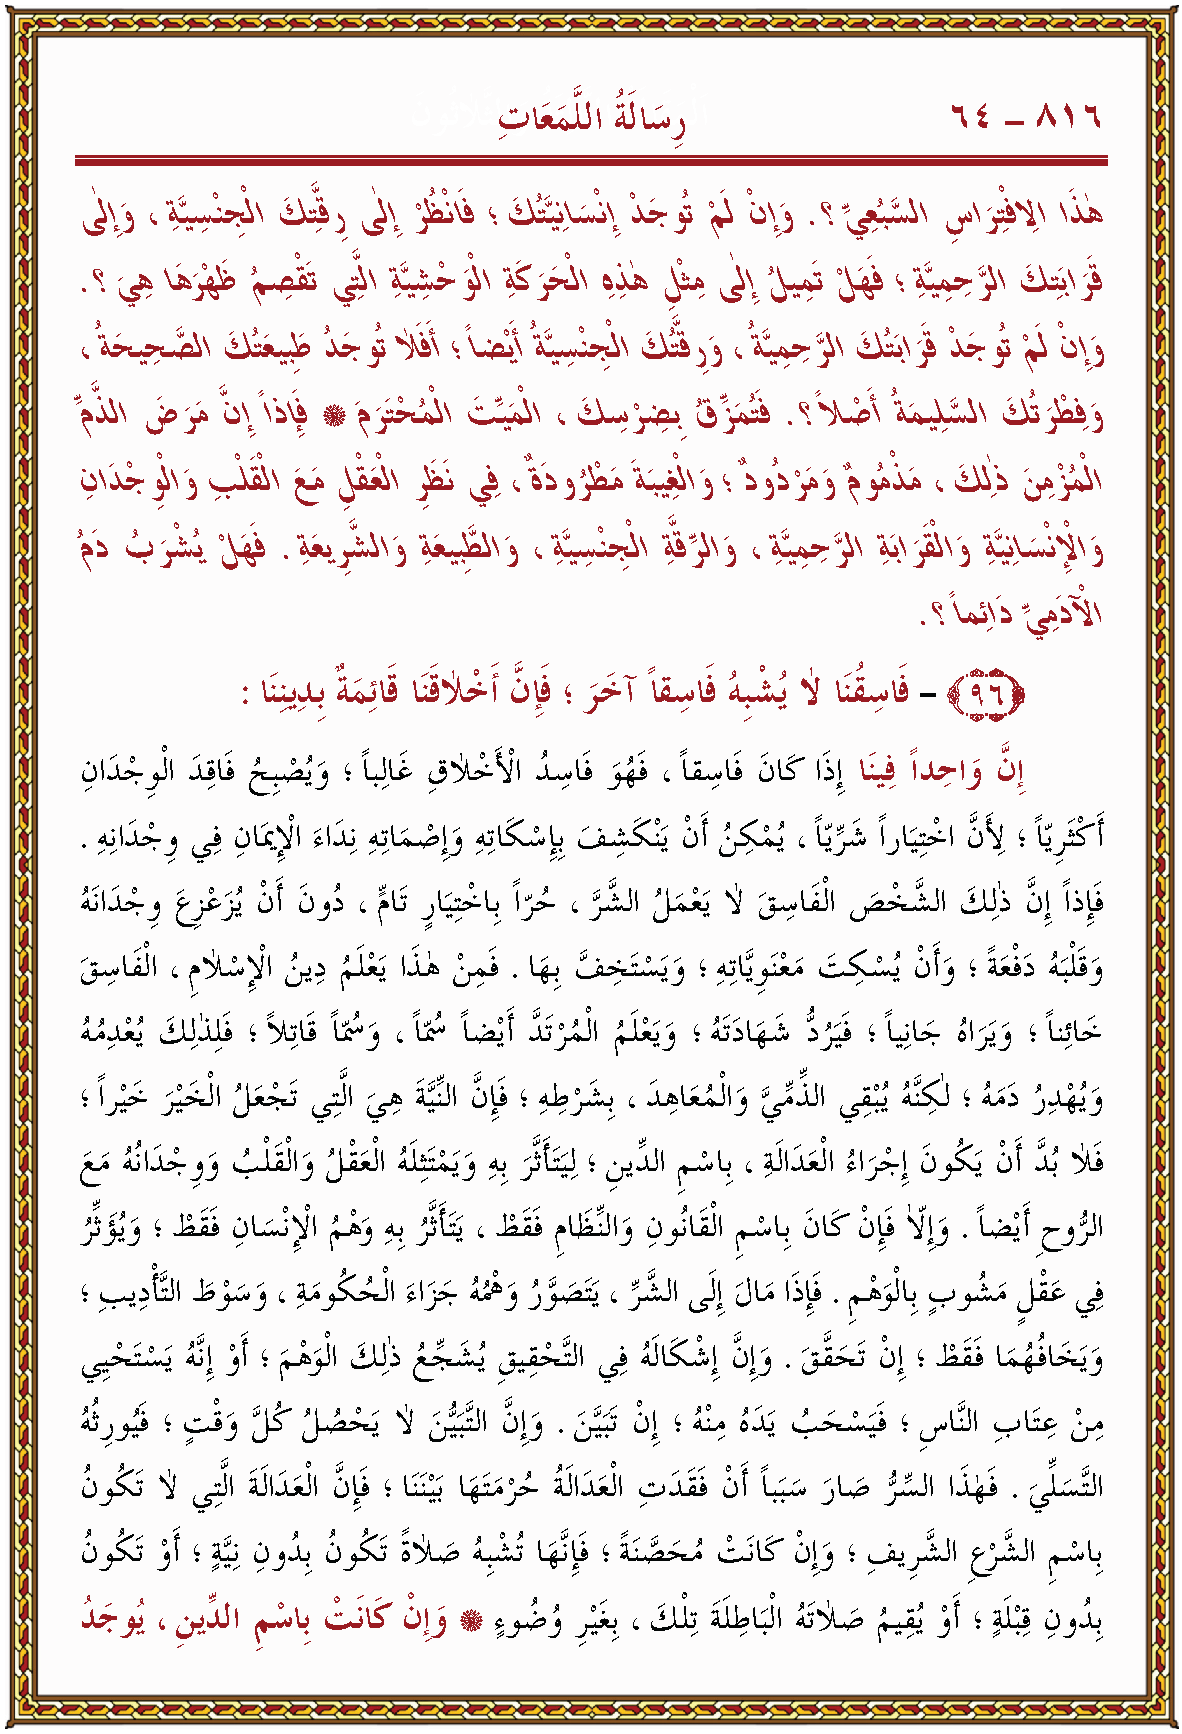 ٨١٦ – ٦٤ رِسَالَةُ اللَّمَعَاتِ
هٰذَا الِافْتِرَاسِ السَّبُعِيِّ ؟. وَإِنْ لَمْ تُوجَدْ إِنْسَانِيَّتُكَ ؛ فَانْظُرْ إِلٰى رِقَّتِكَ الْجِنْسِيَّةِ ، وَإِلٰى
قَرَابَتِكَ الرَّحِمِيَّةِ ؛ فَهَلْ تَمِيلُ إِلٰى مِثْلِ هٰذِهِ الْحَرَكَةِ الْوَحْشِيَّةِ الَّتِي تَقْصِمُ ظَهْرَهَا هِيَ ؟.
وَإِنْ لَمْ تُوجَدْ قَرَابَتُكَ الرَّحِمِيَّةُ ، وَرِقَّتُكَ الْجِنْسِيَّةُ أَيْضاً ؛ أَفَلَا تُوجَدُ طَبِيعَتُكَ الصَّحِيحَةُ ،
وَفِطْرَتُكَ السَّلِيمَةُ أَصْلاً ؟. فَتُمَزِّقُ بِضِرْسِكَ ، الْمَيِّتَ الْمُحْتَرَمَ ۞ فَإِذاً إِنَّ مَرَضَ الذَّمِّ
الْمُزْمِنَ ذٰلِكَ ، مَذْمُومٌ وَمَرْدُودٌ ؛ وَالْغِيبَةَ مَطْرُودَةٌ ، فِي نَظَرِ الْعَقْلِ مَعَ الْقَلْبِ وَالْوِجْدَانِ
وَالْإِنْسَانِيَّةِ وَالْقَرَابَةِ الرَّحِمِيَّةِ ، وَالرِّقَّةِ الْجِنْسِيَّةِ ، وَالطَّبِيعَةِ وَالشَّرِيعَةِ . فَهَلْ يُشْرَبُ دَمُ
الْآدَمِيِّ دَائِماً ؟.
﴿٩٦﴾ – فَاسِقُنَا لَا يُشْبِهُ فَاسِقاً آخَرَ ؛ فَإِنَّ أَخْلَاقَنَا قَائِمَةٌ بِدِينِنَا :
إِنَّ وَاحِداً فِينَا إِذَا كَانَ فَاسِقاً ، فَهُوَ فَاسِدُ الْأَخْلَاقِ غَالِباً ؛ وَيُصْبِحُ فَاقِدَ الْوِجْدَانِ
أَكْثَرِيّاً ؛ لِأَنَّ اخْتِيَاراً شَرِّيّاً ، يُمْكِنُ أَنْ يَنْكَشِفَ بِإِسْكَاتِهِ وَإِصْمَاتِهِ نِدَاءَ الْإِيمَانِ فِي وِجْدَانِهِ .
فَإِذاً إِنَّ ذٰلِكَ الشَّخْصَ الْفَاسِقَ لَا يَعْمَلُ الشَّرَّ ، حُرّاً بِاخْتِيَارٍ تَامٍّ ، دُونَ أَنْ يُزَعْزِعَ وِجْدَانَهُ
وَقَلْبَهُ دَفْعَةً ؛ وَأَنْ يُسْكِتَ مَعْنَوِيَّاتِهِ ؛ وَيَسْتَخِفَّ بِهَا . فَمِنْ هٰذَا يَعْلَمُ دِينُ الْإِسْلَامِ ، الْفَاسِقَ
خَائِناً ؛ وَيَرَاهُ جَانِياً ؛ فَيَرُدُّ شَهَادَتَهُ ؛ وَيَعْلَمُ الْمُرْتَدَّ أَيْضاً سُمّاً ، وَسُمّاً قَاتِلاً ؛ فَلِذٰلِكَ يُعْدِمُهُ
وَيُهْدِرُ دَمَهُ ؛ لٰكِنَّهُ يُبْقِي الذِّمِّيَّ وَالْمُعَاهِدَ ، بِشَرْطِهِ ؛ فَإِنَّ النِّيَّةَ هِيَ الَّتِي تَجْعَلُ الْخَيْرَ خَيْراً ؛
فَلَا بُدَّ أَنْ يَكُونَ إِجْرَاءُ الْعَدَالَةِ ، بِاسْمِ الدِّينِ ؛ لِيَتَأَثَّرَ بِهِ وَيَمْتَثِلَهُ الْعَقْلُ وَالْقَلْبُ وَوِجْدَانُهُ مَعَ
الرُّوحِ أَيْضاً . وَإِلَّا فَإِنْ كَانَ بِاسْمِ الْقَانُونِ وَالنِّظَامِ فَقَطْ ، يَتَأَثَّرُ بِهِ وَهْمُ الْإِنْسَانِ فَقَطْ ؛ وَيُؤَثِّرُ
فِي عَقْلٍ مَشُوبٍ بِالْوَهْمِ . فَإِذَا مَالَ إِلَى الشَّرِّ ، يَتَصَوَّرُ وَهْمُهُ جَزَاءَ الْحُكُومَةِ ، وَسَوْطَ التَّأْدِيبِ ؛
وَيَخَافُهُمَا فَقَطْ ؛ إِنْ تَحَقَّقَ . وَإِنَّ إِشْكَالَهُ فِي التَّحْقِيقِ يُشَجِّعُ ذٰلِكَ الْوَهْمَ ؛ أَوْ إِنَّهُ يَسْتَحْيِي
مِنْ عِتَابِ النَّاسِ ؛ فَيَسْحَبُ يَدَهُ مِنْهُ ؛ إِنْ تَبَيَّنَ . وَإِنَّ التَّبَيُّنَ لَا يَحْصُلُ كُلَّ وَقْتٍ ؛ فَيُورِثُهُ
التَّسَلِّيَ . فَهٰذَا السِّرُّ صَارَ سَبَباً أَنْ فَقَدَتِ الْعَدَالَةُ حُرْمَتَهَا بَيْنَنَا ؛ فَإِنَّ الْعَدَالَةَ الَّتِي لَا تَكُونُ
بِاسْمِ الشَّرْعِ الشَّرِيفِ ؛ وَإِنْ كَانَتْ مُحَصَّنَةً ؛ فَإِنَّهَا تُشْبِهُ صَلَاةً تَكُونُ بِدُونِ نِيَّةٍ ؛ أَوْ تَكُونُ
بِدُونِ قِبْلَةٍ ؛ أَوْ يُقِيمُ صَلَاتَهُ الْبَاطِلَةَ تِلْكَ ، بِغَيْرِ وُضُوءٍ ۞ وَإِنْ كَانَتْ بِاسْمِ الدِّينِ ، يُوجَدُ